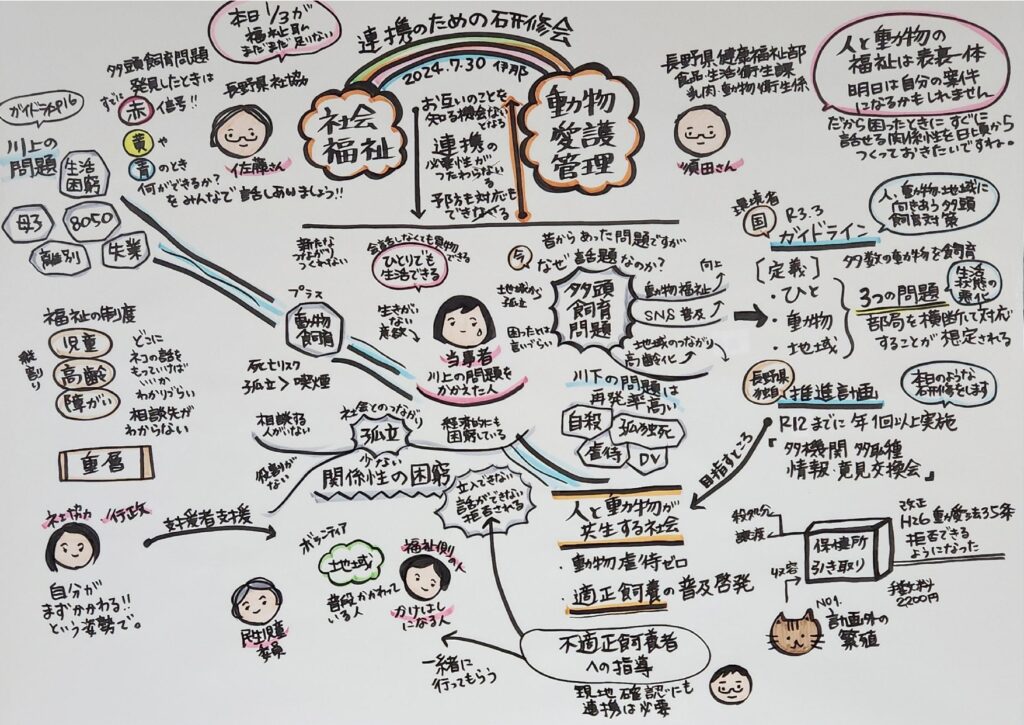 連携のための研修会
2024.7.30 伊那
社会
福祉
動物
愛護
管理
お互いのことを
知る機会がないとなる
連携の
必要性が
つたわらない
予防も対応も
できなくなる
本日1/3が
福祉です
まだまだ足りない
長野県社協
佐藤さん
多頭飼育問題
発見したときは
すぐに
赤信号!!
黄や
青のとき
何ができるか?
をみんなで話しあいましょう!!
ガイドラインP16
川上の
問題
生活
困窮
母子
8050
離別
失業
長野県健康福祉部
食品・生活衛生課
乳肉・動物衛生係
須田さん
人と動物の
福祉は表裏一体
明日は自分の案件
になるかもしれません
だから困ったときにすぐに
話せる関係性を日頃から
つくっておきたいですね。
環境省
国
R3.3
ガイドライン
人、動物、地域に
向きあう多頭
飼育対策
[定義]
・ひと
・動物
・地域
多数の動物を飼育
3つの問題
生活
状態の
悪化
部局を横断して対応
することが想定される
長野県
独自
推進計画
本日のような
研修をします
R12までに年1回以上実施
『多機関 多職種
情報・意見交換会』
目指すところ
昔からあった問題ですが
今
なぜ話題なのか?
多頭
飼育
問題
向上
動物福祉
SNS普及
地域のつながり
高齢化
地域から
孤立
困ったとは
言いづらい
新たな
つながり
つくれない
会話しなくても買物できる
ひとりでも
生活できる
生きがい
ない
喪失
当事者
川上の問題を
かかえた人
プラス
動物
飼育
死亡リスク
孤立>喫煙
相談する
人がいない
社会とのつながり
少ない
孤立
経済的にも
困窮している
役割が
ない
関係性の困窮
立入できない
話ができない
拒否される
川下の問題は
再発率高い
自殺
孤独死
虐待
DV
人と動物が
共生する社会
・動物虐待ゼロ
・適正飼養の普及啓発
福祉の制度
縦割り
児童
高齢
障がい
どこに
ネコの話を
もっていけば
いいか
わかりづらい
相談先が
わからない
重層
社協/行政
支援者支援
自分が
まずかかわる!!
という姿勢で。
民生児童
委員
ボランティア
地域
普段かかわって
いる人
福祉側の人
かけはし
になる人
一緒に
行ってもらう
不適正飼養者
への指導
現地確認にも
連携は必要
殺処分
譲渡
収容
保健所
引き取り
改正
H26動愛法35条
拒否できる
ようになった
手数料
2200円
No1.
計画外の
繁殖